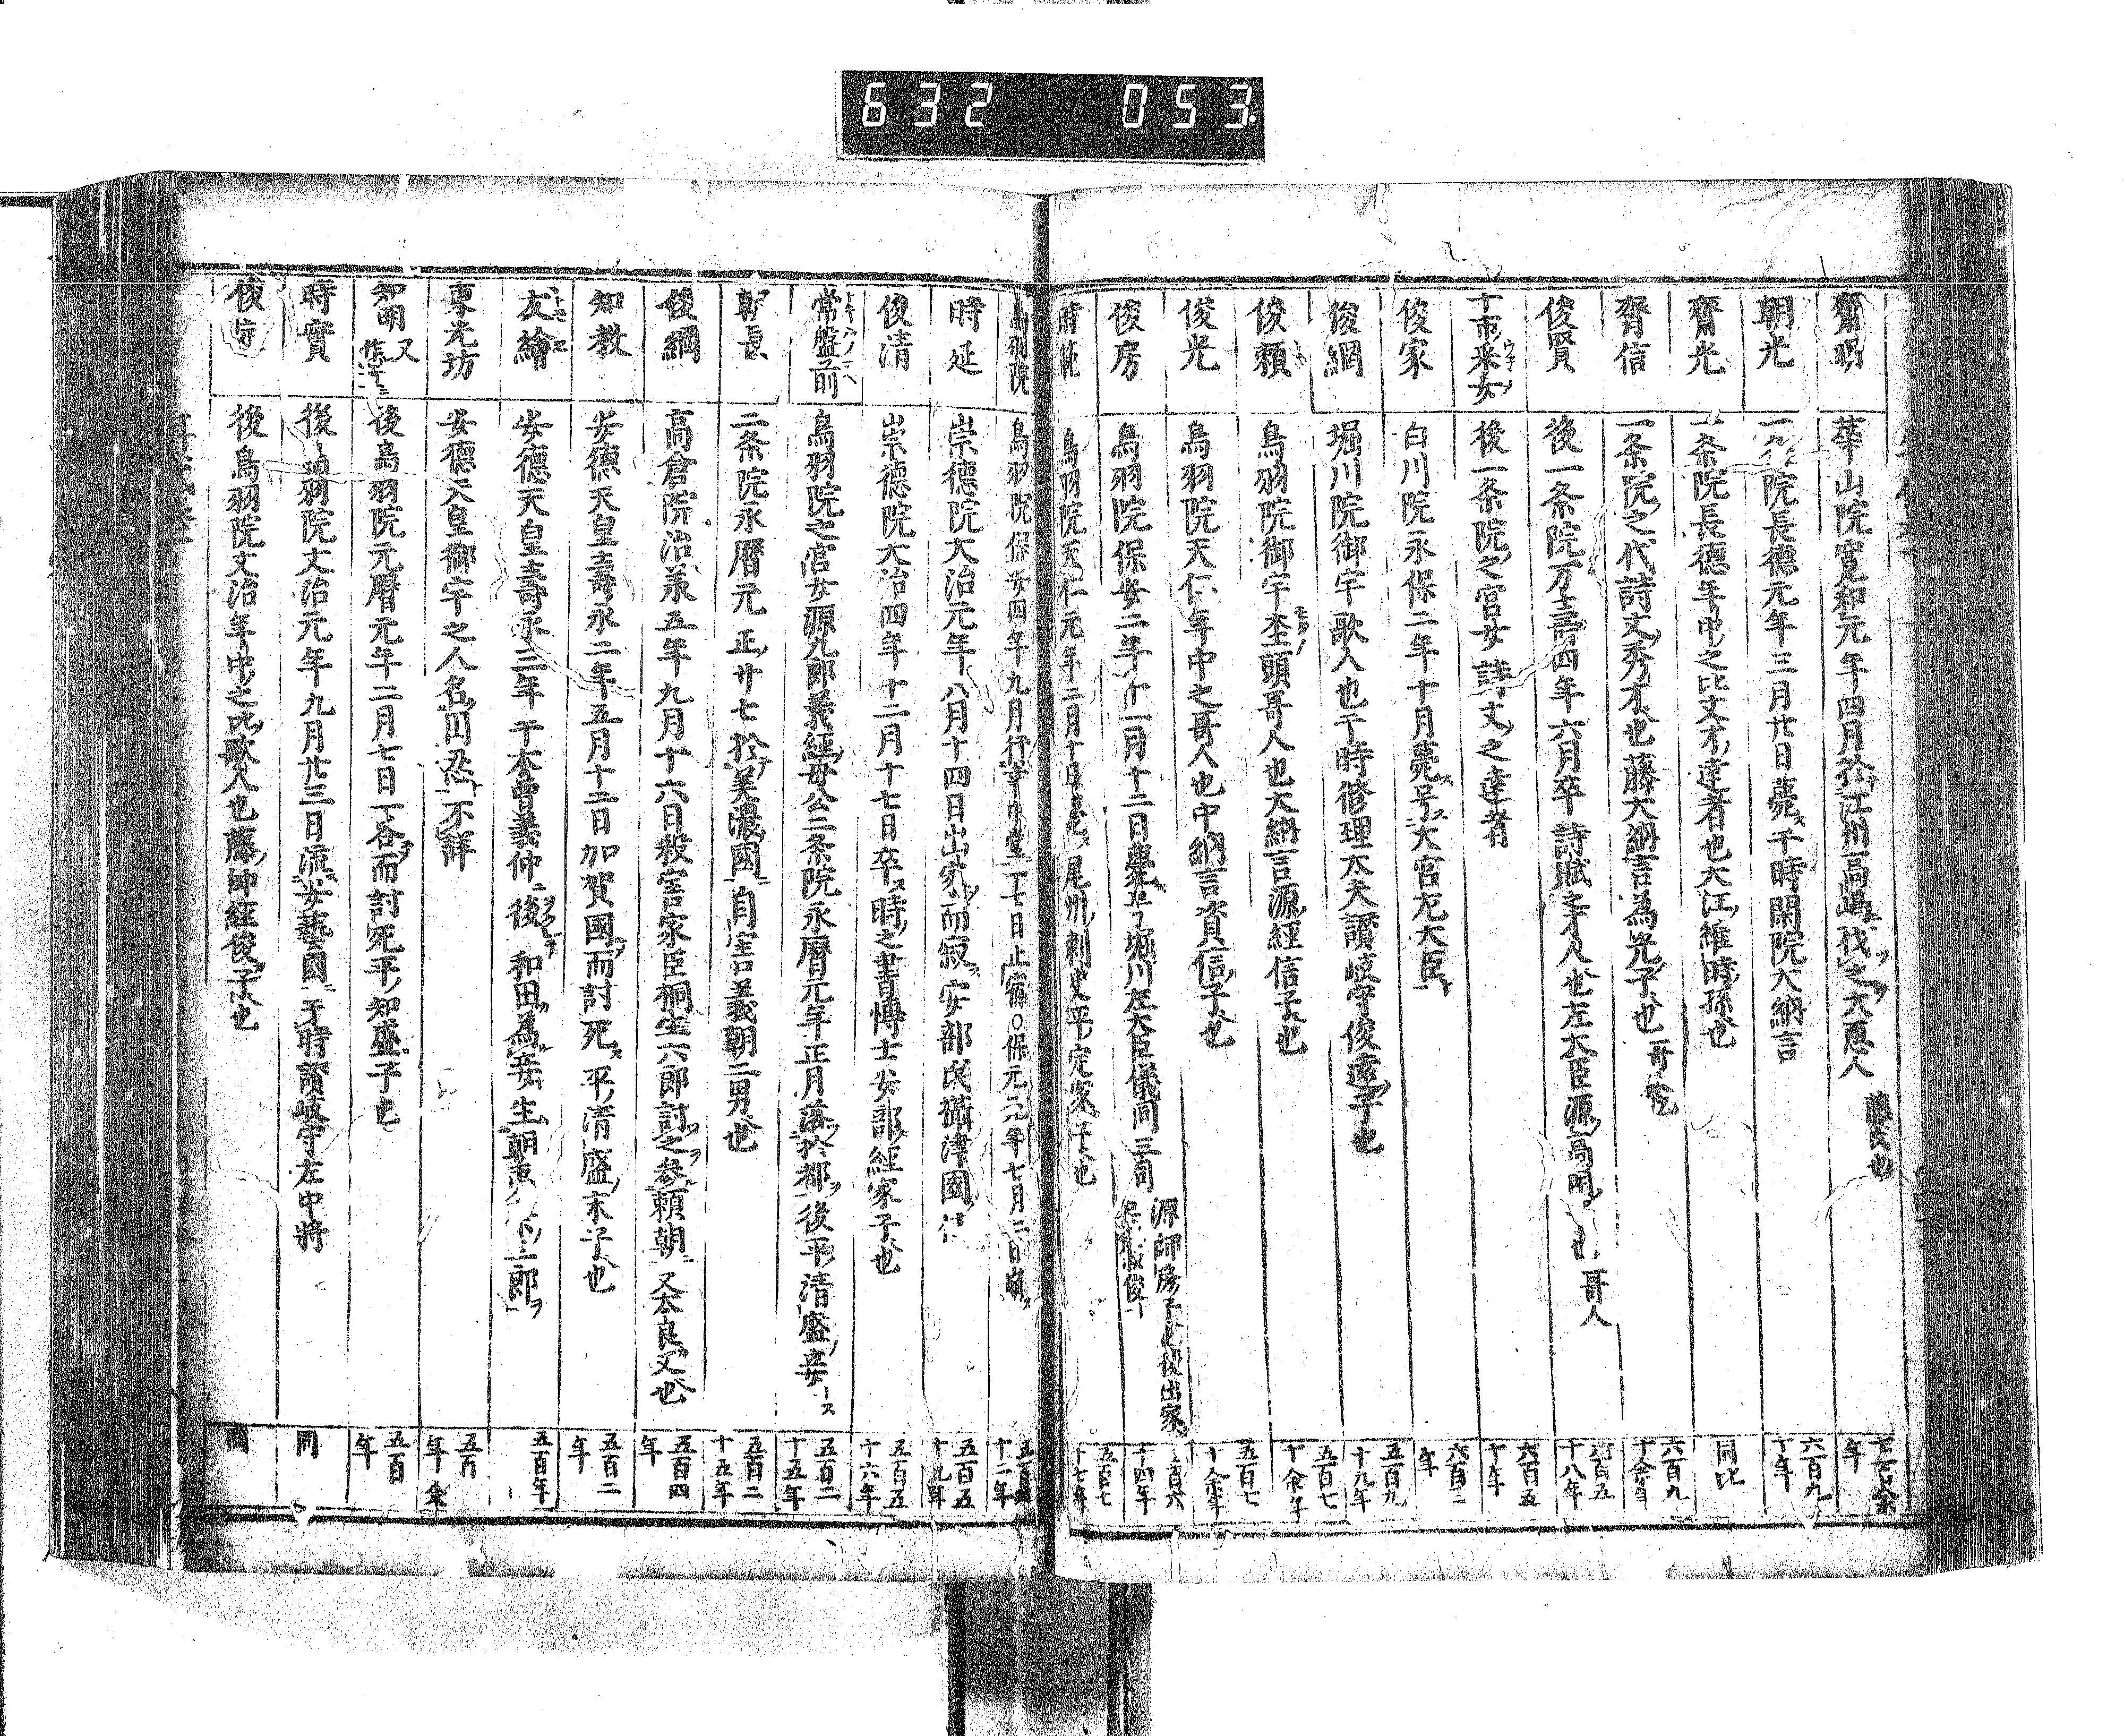 632 053.
齊明 華山院寛和元年四月於江州高嶋伐之大悪人 藤氏也 七百余年
朝光 一条院長德元年三月廿日薨ス于時閑院大納言 六百九十年
齊光 一条院長德年中之比文才達者也大江維時孫也 同比
齊信 一条院之代詩文秀才也藤大納言為光子也 六百九十余年
俊賢 後一条院万壽四年六月卒詩賦之才人也左大臣源高明 也哥人 六百五十八年
十市采女 後一条院之宮女詩文之達者 六百五十年
俊家 白川院永保二年十月薨ス号ス大宮左大臣 六百二年
俊綱 堀川院御宇歌人也于時修理大夫讃岐守俊遠子也 五百九十九年
俊頼 鳥羽院御宇杢頭哥人也大納言源經信子也 五百七十余年
俊光 鳥羽院天仁年中之哥人也中納言資信子也 五百七十余年
俊房 鳥羽院保安二年十一月十二日薨 堀川左大臣儀同三司 源師房子也後出家 百六十四年
時範 鳥羽院天仁元年二月十日 尾州刺史平定家子也 五百七十七年
鳥羽院 鳥羽院保安四年九月行幸中堂一七日止宿○保元元年七月二日崩ス 十二年
時延 崇德院大治元年八月十四日出家而寂ス安部氏攝津國 五百五十九年
俊清 崇德院大治四年十二月十七日卒ス時之書博士安部經家子也 五百五十六年
常盤前 鳥羽院之宮女源九郎義經母公二条院永暦元年正月落於都後平清盛妾 五百二十五年
朝長 二条院永暦元正廿七於美濃國自害義朝二男也 五百二十五年
俊綱 高倉院治承五年九月十六日殺害家臣桐生六郎討之参頼朝 又太良又也 五百四年
知教 安德天皇壽永二年五月十二日加賀國而討死ス平清盛末子也 五百二年
友繪 安德天皇壽永三年 于木曽義仲ニ後 和田為妾生朝 郎ヲ 五百年
東光坊 安德天皇御宇之人名 不詳 五百年余
知明 又作 後鳥羽院元暦元年二月七日一谷而討死平知盛子也 五百年
時實 後鳥羽院文治元年九月廿三日流安藝國于時讃岐守左中將 同
俊 後鳥羽院文治年中之比歌人也藤帥經俊子也 同